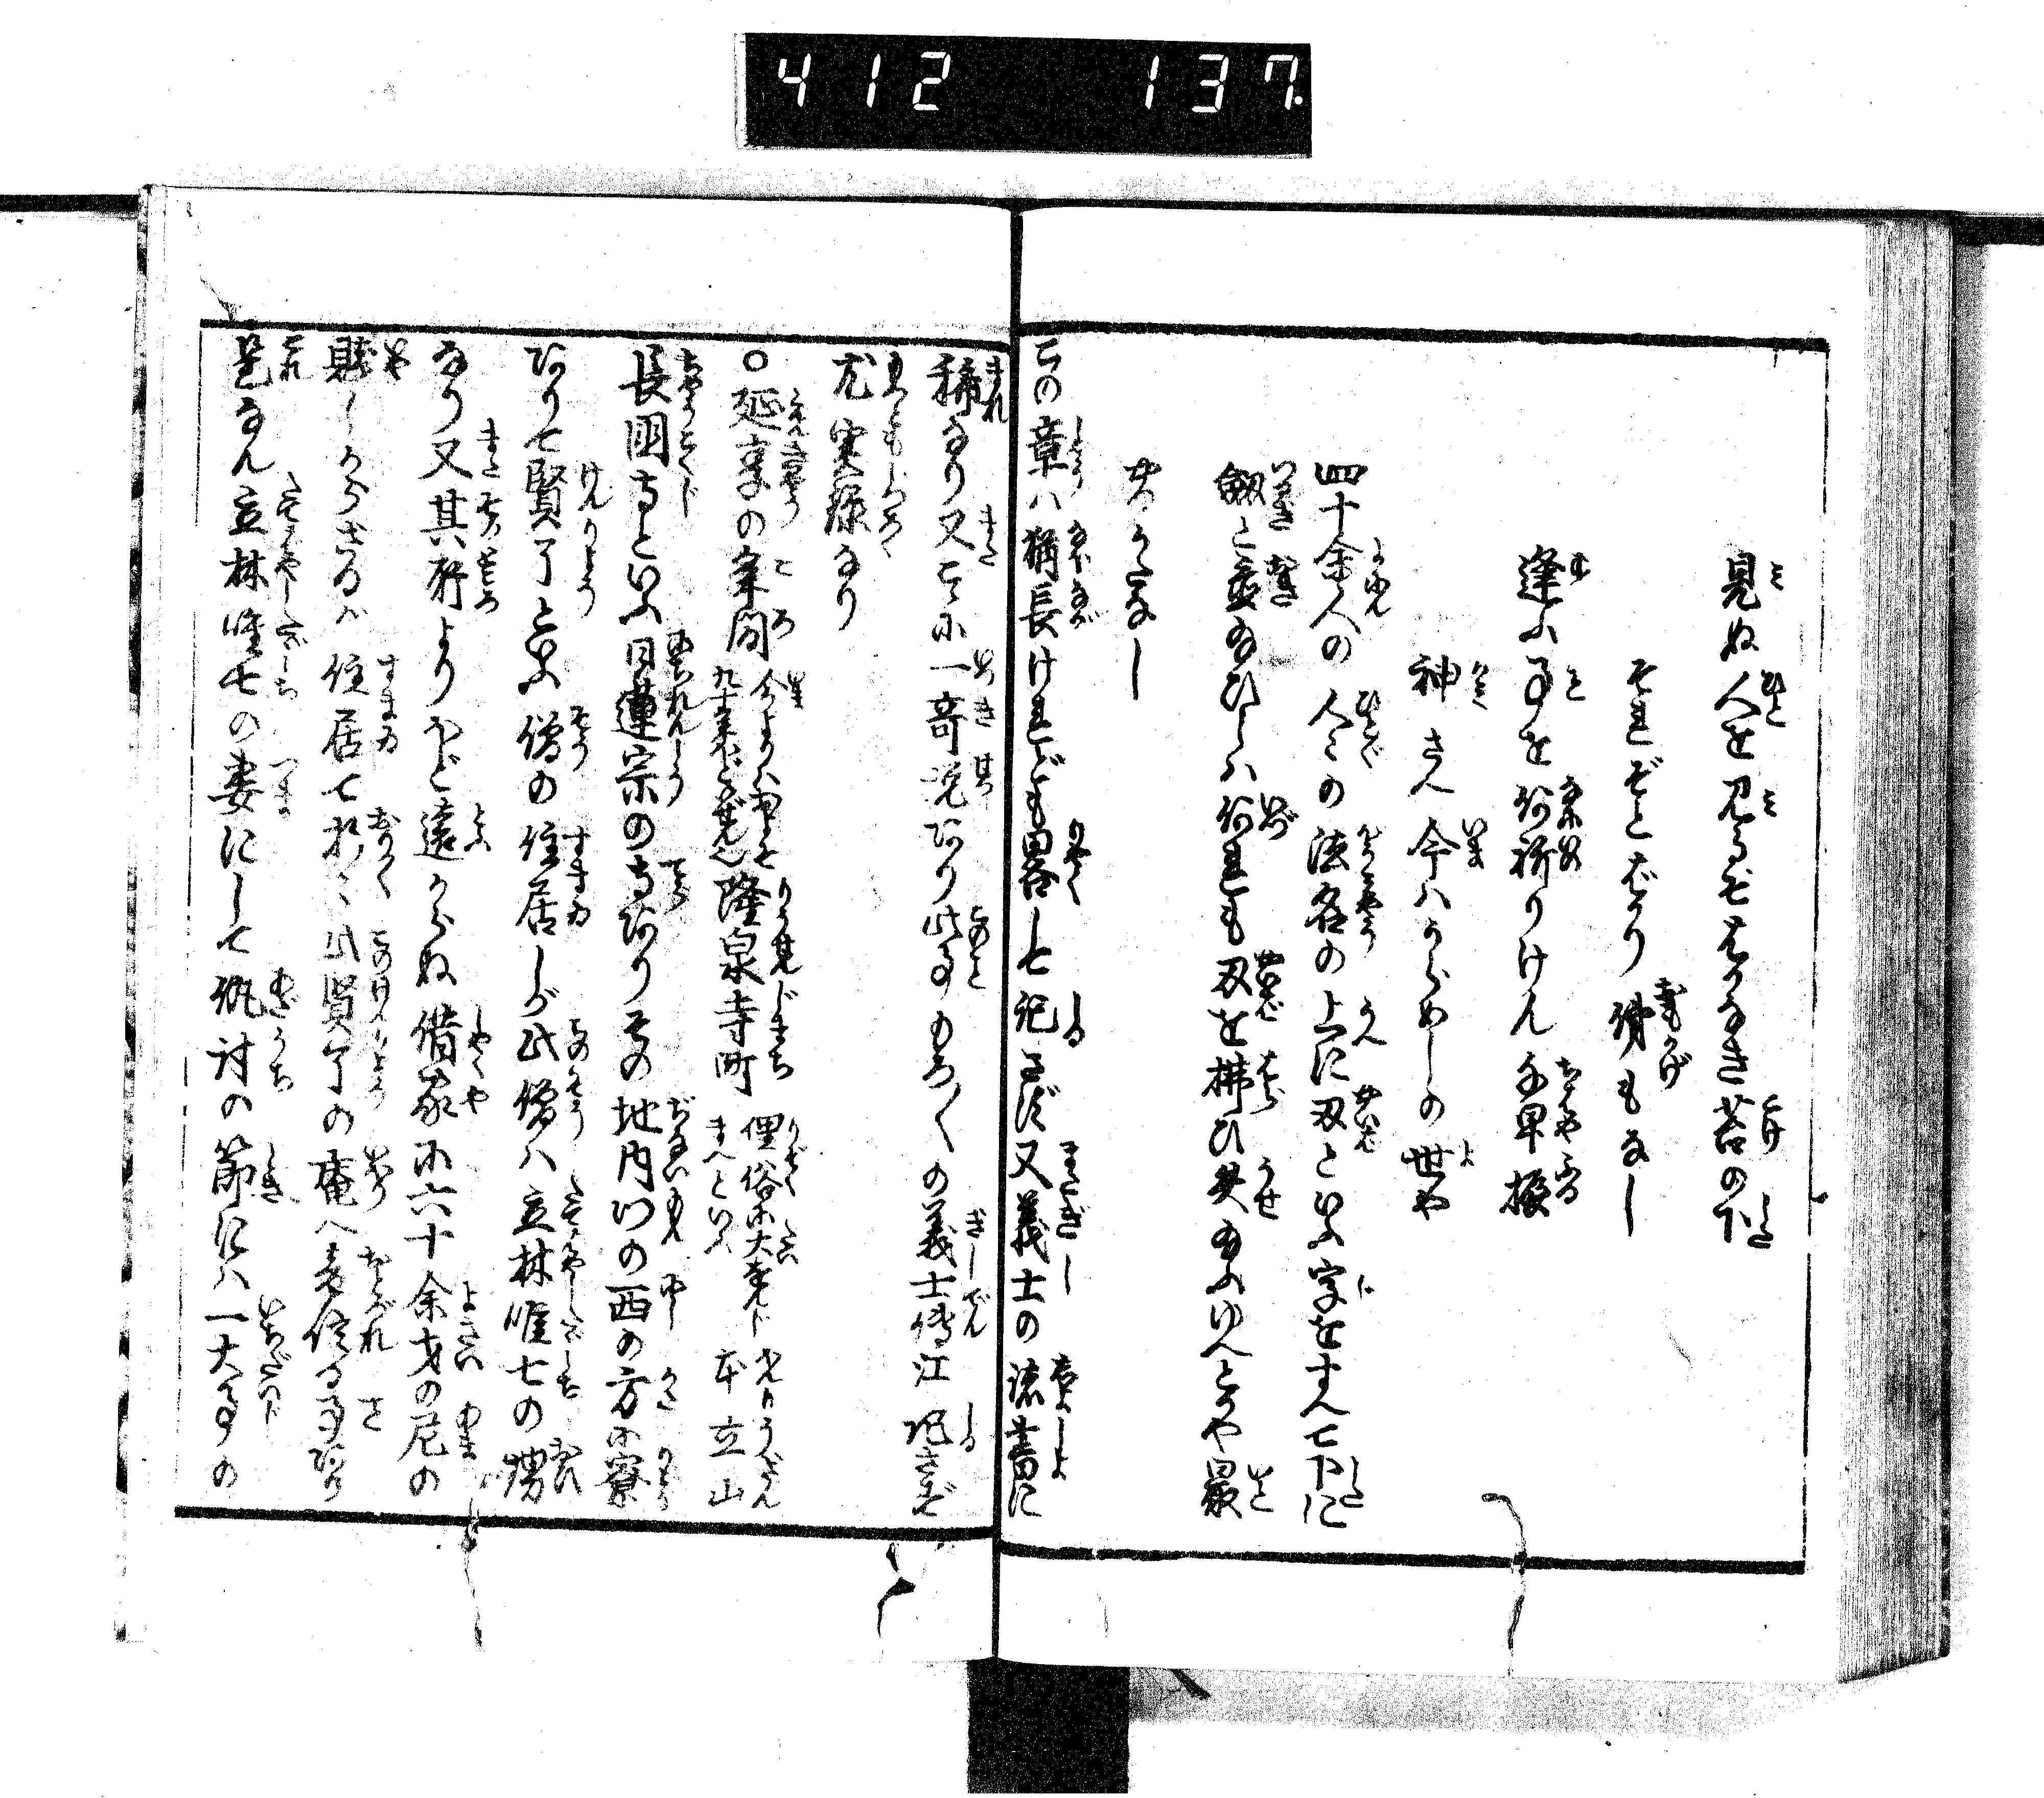 412 137
見ぬ人を見るぞはかなき苔の下
それぞとばかり俤もなし
逢ふ事を何祈りけん千早振
神さへ今はうらめしの世や
四十余人の人〻の法名の上に刃といふ字をすへて下に
劔と並ひしハ何れも刃を払ひ失ふゆへとかや最
古の章ハ猶長けれども畧して記さず又義士の諸書に
稀なり又こゝに一奇説あり此事もろ〳〵の義士傳江記さず
尤実録なり
〇延享の年間 今よりハ
九十年にちかし 隆泉寺町 俚俗に大乗寺
まへといふ 本立山
長国寺といふ日蓮宗の寺ありその地内門の西の方に寮
ありて賢了といふ僧の住居しが此僧ハ立林唯七の甥
なり又其所よりほど遠からぬ借家に六十余才の尼の
賤しからざるが住居て折〻此賢了の庵へ音信る事あり
是なん立林唯七の妻にして仇討の節にハ一大事の